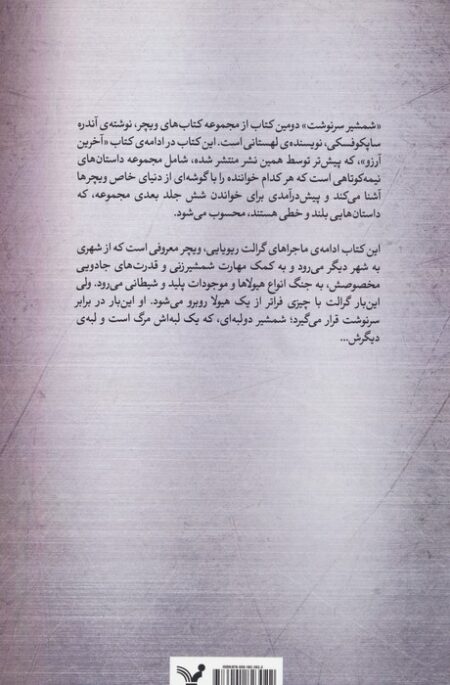 «شمشیر سرنوشت» دومین کتاب از مجموعه کتاب‌های ویچر، نوشته‌ی آندره
ساپکوفسکی، نویسنده‌ی لهستانی است. این کتاب در ادامه‌ی کتاب «آخرین
آرزو»، که پیش‌تر توسط همین نشر منتشر شده، شامل مجموعه داستان‌های
نیمه‌کوتاهی است که هر کدام خواننده را با گوشه‌ای از دنیای خاص ویچرها
آشنا می‌کند و پیش‌درآمدی برای خواندن شش جلد بعدی مجموعه، که
داستان‌هایی بلند و خطی هستند، محسوب می‌شود.
این کتاب ادامه‌ی ماجراهای گرالت ریویایی، ویچر معروفی است که از شهری
به شهر دیگر می‌رود و به کمک مهارت شمشیرزنی و قدرت‌های جادویی
مخصوصش، به جنگ انواع هیولاها و موجودات پلید و شیطانی می‌رود، ولی
این‌بار گرالت با چیزی فراتر از یک هیولا روبرو می‌شود. او این‌بار در برابر
سرنوشت قرار می‌گیرد؛ شمشیر دولبه‌ای، که یک لبه‌اش مرگ است و لبه‌ی
دیگرش...